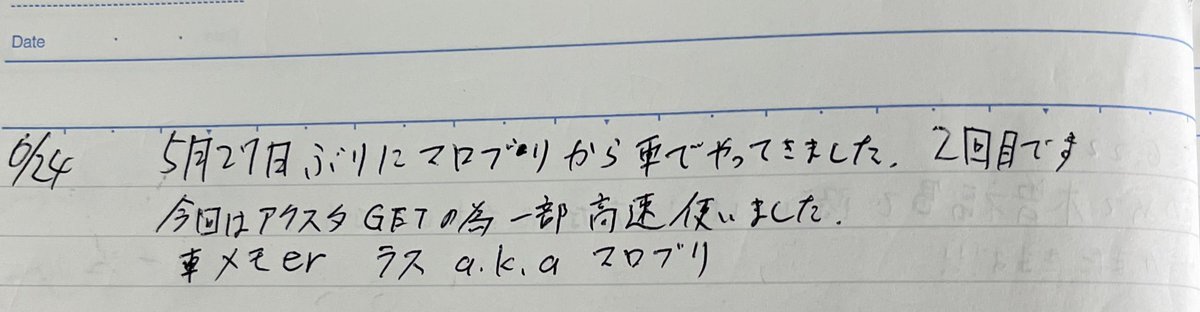 Date
6/24 5月27日ぶりにマロブリから車でやってきました。2回目です
今回はアクスタGETの為一部高速使いました。
車メモer ラス a.k.a マロブリ